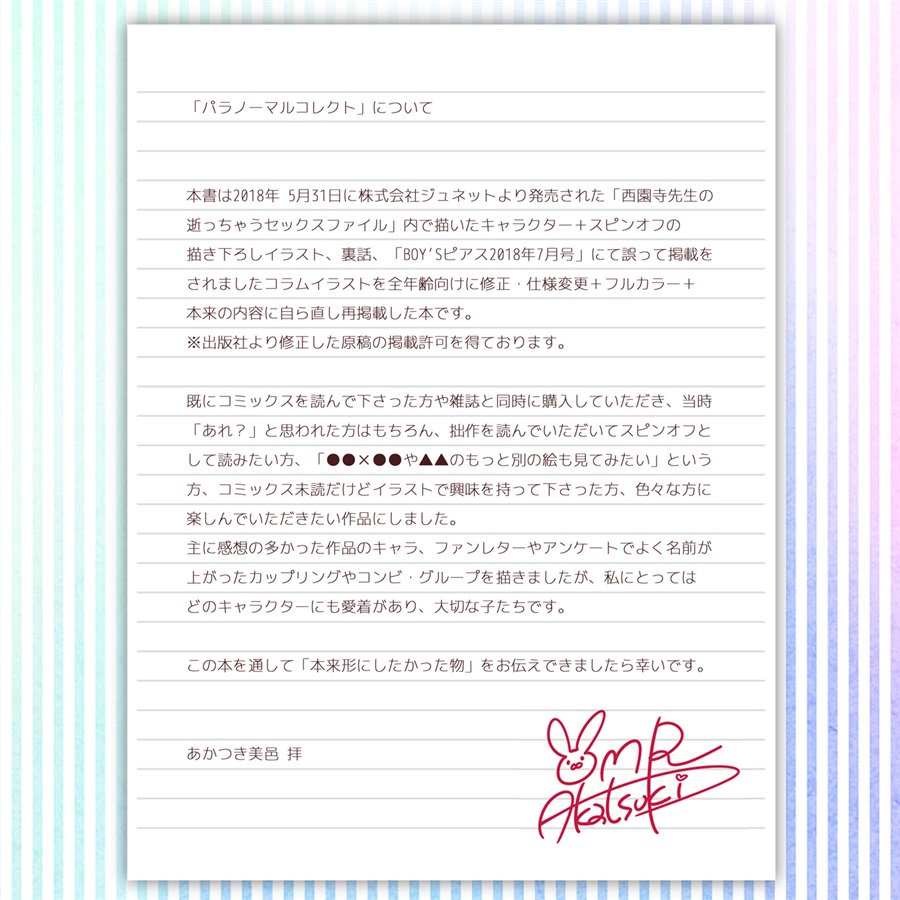 「パラノーマルコレクト」について
本書は2018年 5月31日に株式会社ジュネットより発売された「西園寺先生の
逝っちゃうセックスファイル」内で描いたキャラクター+スピンオフの
描き下ろしイラスト、裏話、「BOY'Sピアス2018年7月号」にて誤って掲載を
されましたコラムイラストを全年齢向けに修正・仕様変更+フルカラー+
本来の内容に自ら直し再掲載した本です。
※出版社より修正した原稿の掲載許可を得ております。
既にコミックスを読んで下さった方や雑誌と同時に購入していただき、当時
「あれ?」と思われた方はもちろん、拙作を読んでいただいてスピンオフと
して読みたい方、「●●×●●や▲▲のもっと別の絵も見てみたい」という
方、コミックス未読だけどイラストで興味を持って下さった方、色々な方に
楽しんでいただきたい作品にしました。
主に感想の多かった作品のキャラ、ファンレターやアンケートでよく名前が
上がったカップリングやコンビ・グループを描きましたが、私にとっては
どのキャラクターにも愛着があり、大切な子たちです。
この本を通して「本来形にしたかった物」をお伝えできましたら幸いです。
あかつき美邑 拝
Akatsuki